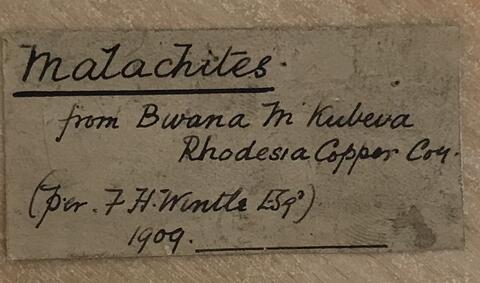 Malachites.
from Bwana M'Kubeva
Rhodesia Copper Coy.
(per. F H. Wintle Esqr)
1909.